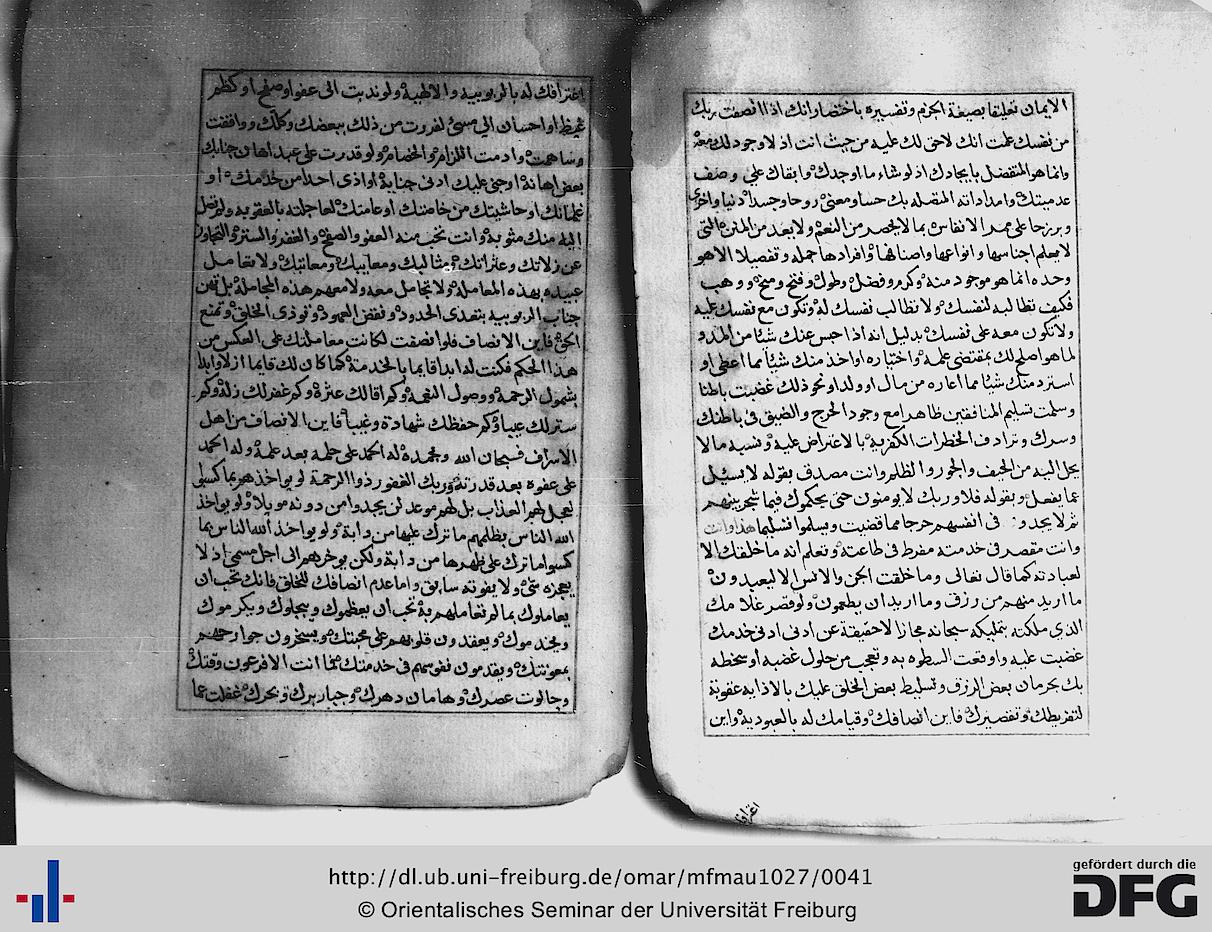 الايمان تعليقا بصيغة الجزم وتفسيره باختصار انك اذا انصفت ربك
من نفسك علمت انك لاحق لك عليه من حيث انت اذ لا وجود لك معه
وانما هو المتفضل بايجادك اذ لو شاء ما اوجدك وابقاك على وصف
عدميتك وامداداته المتصله بك حسا ومعنى روحا وجسدا دنيا واخرى
وبرزخا على ممر الانفاس بما لا يحصر من النعم ولا يعد من المنن التى
لا يعلم اجناسها وانواعها واصنافها وافرادها جمله وتفصيلا الا هو
وحده انما هو موجود منه وكرم وفضل وطول وفتح ومنح ووهب
فكيف تطالبه لنفسك ولا تطالب نفسك له وتكون مع نفسك عليه
ولا تكون معه على نفسك بدليل انه اذا حبس عنك شيا من المدد
لما هو اصلح لك بمقتضى علمه واختياره او اخذ منك شيأ مما اعطى او
استرد منك شيا مما اعاره من مال او ولد او نحو ذلك غضبت باطنا
وسلمت تسليم المنافقين ظاهرا مع وجود الحرج والضيق فى باطنك
وسرك وترادف الخطرات الكفرية بالاعتراض عليه ونسبه مالا
يحل اليه من الحيف والجور والظلم وانت مصدق بقوله لا يسئل
عما يفعل وبقوله فلا وربك لا يومنون حتى يحكموك فيما شجر بينهم
ثم لا يجدو فى انفسهم حرجا مما قضيت ويسلموا تسليما هذا وانت
وانت مقصر فى خدمته مفرط فى طاعته وتعلم انه ما خلقك الا
لعبادته كما قال تعالى وما خلقت الجن والانس الا ليعبدون
ما اريد منهم من رزق وما اريد ان يطعمون ولو قصر غلامك
الذي ملكته بتمليكه سبحانه مجازا لا حقيقة عن ادنى ادنى خدمك
غضبت عليه واوقعت السطوه به وتعجب من حلول غضبه او سخطه
بك بحرمان بعض الرزق وتسليط بعض الخلق عليك بالاذايه عقوبة
لتفريطك وتقصيرك فاين انصافك وقيامك له بالعبودية واين
اعترافك
اعترافك له بالربوبيه والالهية ولو ندبت الى عفو او صفح او كظم
غيظ او احسان الي مسئ لفررت من ذلك ببعضك وكلك ووافقت
وساهمت وادمت اللزام والخصام ولو قدرت على عبد اهان جنابك
بعض اهانة او جنى عليك ادنى جناية او اذى احدا من خدمك او
غلمانك او حاشيتك من خاصتك او عامتك لعاجلته بالعقوبه ولم تصل
اليه منك مثوبة وانت تحب منه العفو والصفح والغفر والستر والتجاوز
عن زلاتك وعثراتك ومثالبك ومعايبك ومعاتبك ولا تعامل
عبيده بهذه المعاملة ولا تجامل معه ولا معهم هذه المجاملة بل تهن
جناب الربوبيه بتعدى الحدود ونقض العهود وتوذى الخلق وتمنع
الحق فاين الانصاف فلو انصفت لكانت معاملتك على العكس من
هذا الحكم فكنت له ابدا قايما بالخدمة كما كان لك قايما ازلا وابدا
بشمول الرحمة ووصول النعمة وكم اقالك عثرة وكم غفر لك زلة وكم
ستر لك عيبا وكم حفظك شهادة وغيبا فاين الانصاف من اهل
الاسراف فسبحان الله وبحمده له الحمد على حلمه بعد علمه وله الحمد
على عفوه بعد قدرته وربك الغفور ذو الرحمة لو يواخذهم بما كسبوا
لعجل لهم العذاب بل لهم موعد لن يجدوا من دونه مويلا ولو يواخذ
الله الناس بظلمهم ما ترك عليها من دابة ولو يواخذ الله الناس بما
كسبوا ما ترك على ظهرها من دابة ولكن يوخرهم الى اجل مسمى اذ لا
يعجزه شئ ولا يفوته سابق واما عدم انصافك للخلق فانك تحب ان
يعاملوك بما لم تعاملهم به تحب ان يعظموك ويبجلوك ويكرموك
ويمجدوك ويعقدون قلوبهم على محبتك ويسخرون جوارحهم
بمعونتك ويقدمون نفوسهم فى خدمتك فما انت الا فرعون وقتك
وجالوت عصرك وهامان دهرك وجبار برك وبحرك غفلت عما
http://dl.ub.uni-freiburg.de/omar/mfmau1027/0041
© Orientalisches Seminar der Universität Freiburg
gefördert durch die
DFG